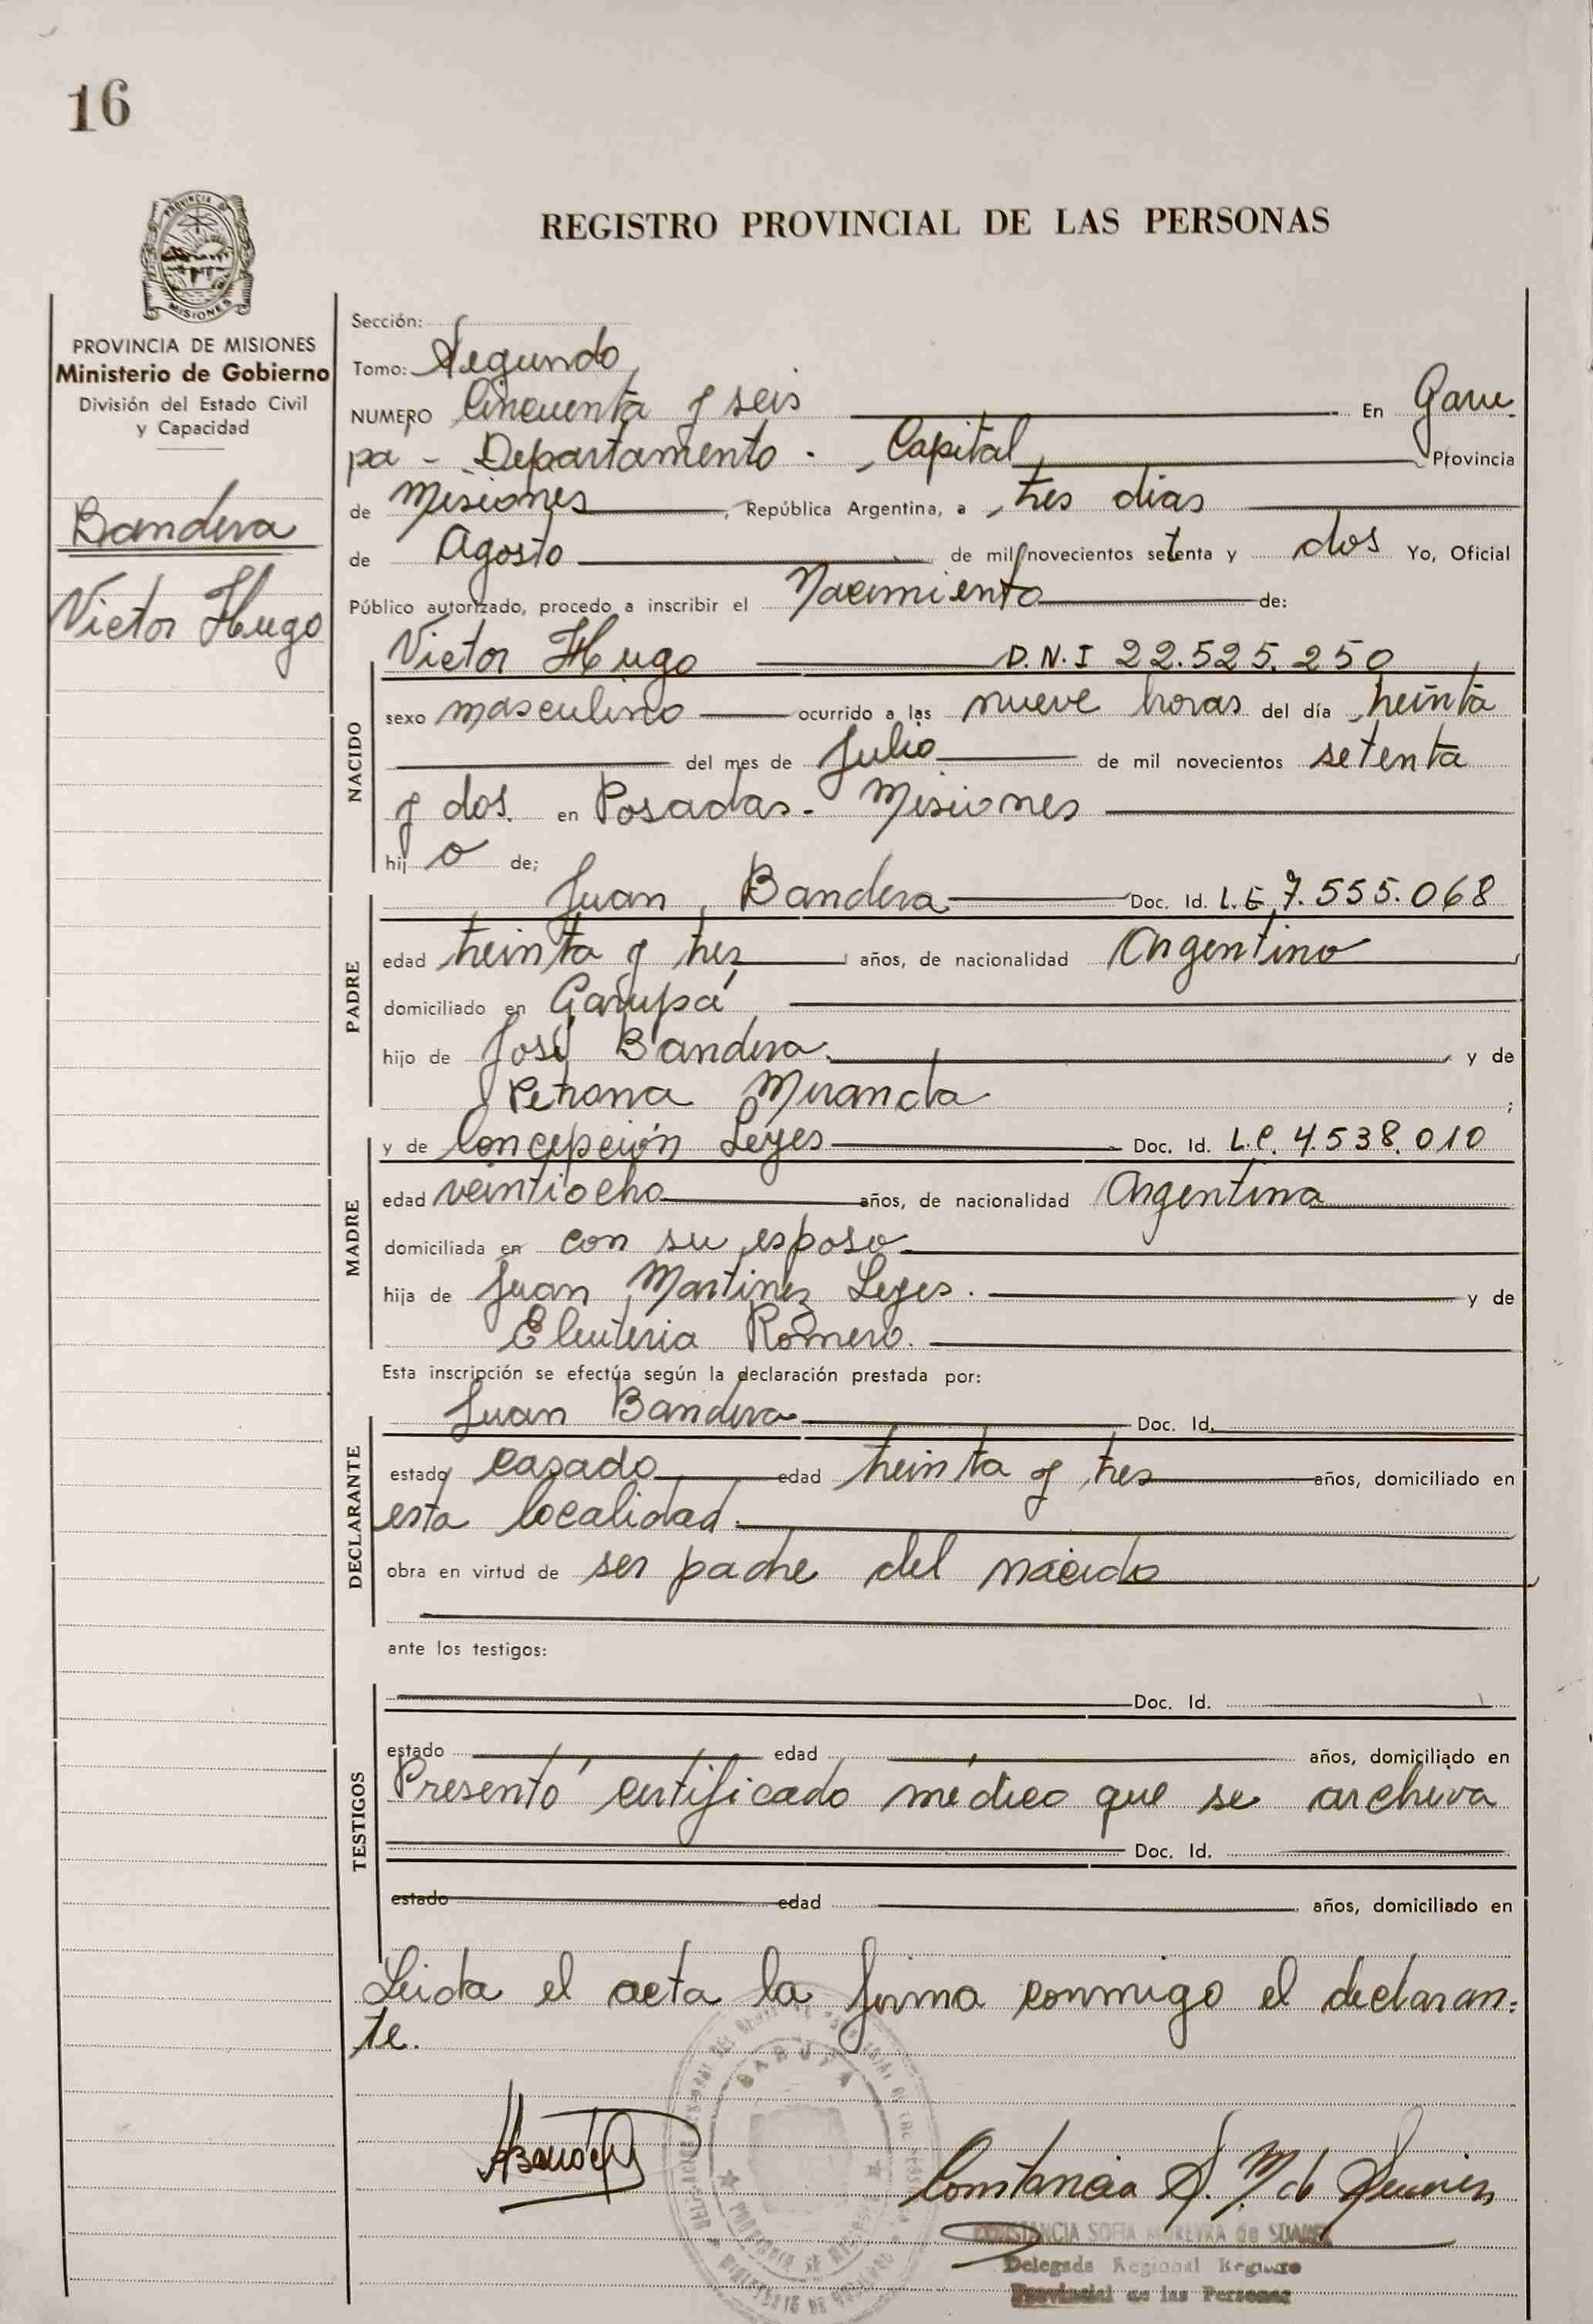 16
PROVINCIA DE
MISIONES
REGISTRO PROVINCIAL DE LAS PERSONAS
PROVINCIA DE MISIONES
Ministerio de Gobierno
División del Estado Civil
y Capacidad
Bandera
Victor Hugo
Sección:
Tomo: Segundo
NUMERO Cincuenta y seis En Garu-
pa - Departamento - Capital Provincia
de Misiones, República Argentina, a tres dias
de Agosto de mil novecientos setenta y dos Yo, Oficial
Público autorizado, procedo a inscribir el Nacimiento de:
NACIDO
Victor Hugo D.N.I 22.525.250
sexo masculino ocurrido a las nueve horas del día treinta
del mes de Julio de mil novecientos setenta
y dos. en Posadas - Misiones
hij o de;
PADRE
Juan Bandera Doc. Id. L.E 7.555.068
edad treinta y tres años, de nacionalidad Argentino
domiciliado en Garupá
hijo de José Bandera y de
Petrona Miranda ;
MADRE
y de Concepción Leyes Doc. Id. L.C. 4.538.010
edad veintiocho años, de nacionalidad Argentina
domiciliada en con su esposo
hija de Juan Martinez Leyes. y de
Eleuteria Romero.
Esta inscripción se efectúa según la declaración prestada por:
DECLARANTE
Juan Bandera Doc. Id.
estado casado edad treinta y tres años, domiciliado en
esta localidad.
obra en virtud de ser padre del nacido
ante los testigos:
TESTIGOS
Doc. Id.
estado edad años, domiciliado en
Presentó certificado médico que se archiva
Doc. Id.
estado edad años, domiciliado en
Leida el acta la firma conmigo el declaran-
te.
GARUPA
Constancia S. M de Suarez
CONSTANCIA SOFIA MOREYRA de SUAREZ
Delegada Regional Registro
Provincial de las Personas